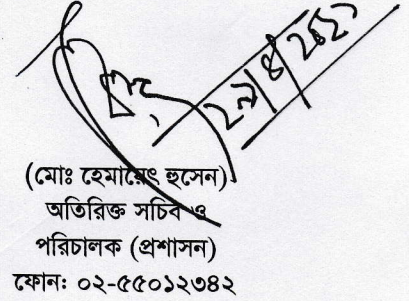 (মোঃ হেমায়েৎ হুসেন)
অতিরিক্ত সচিব ও
পরিচালক (প্রশাসন)
ফোনঃ ০২-৫৫০১২৩৪২